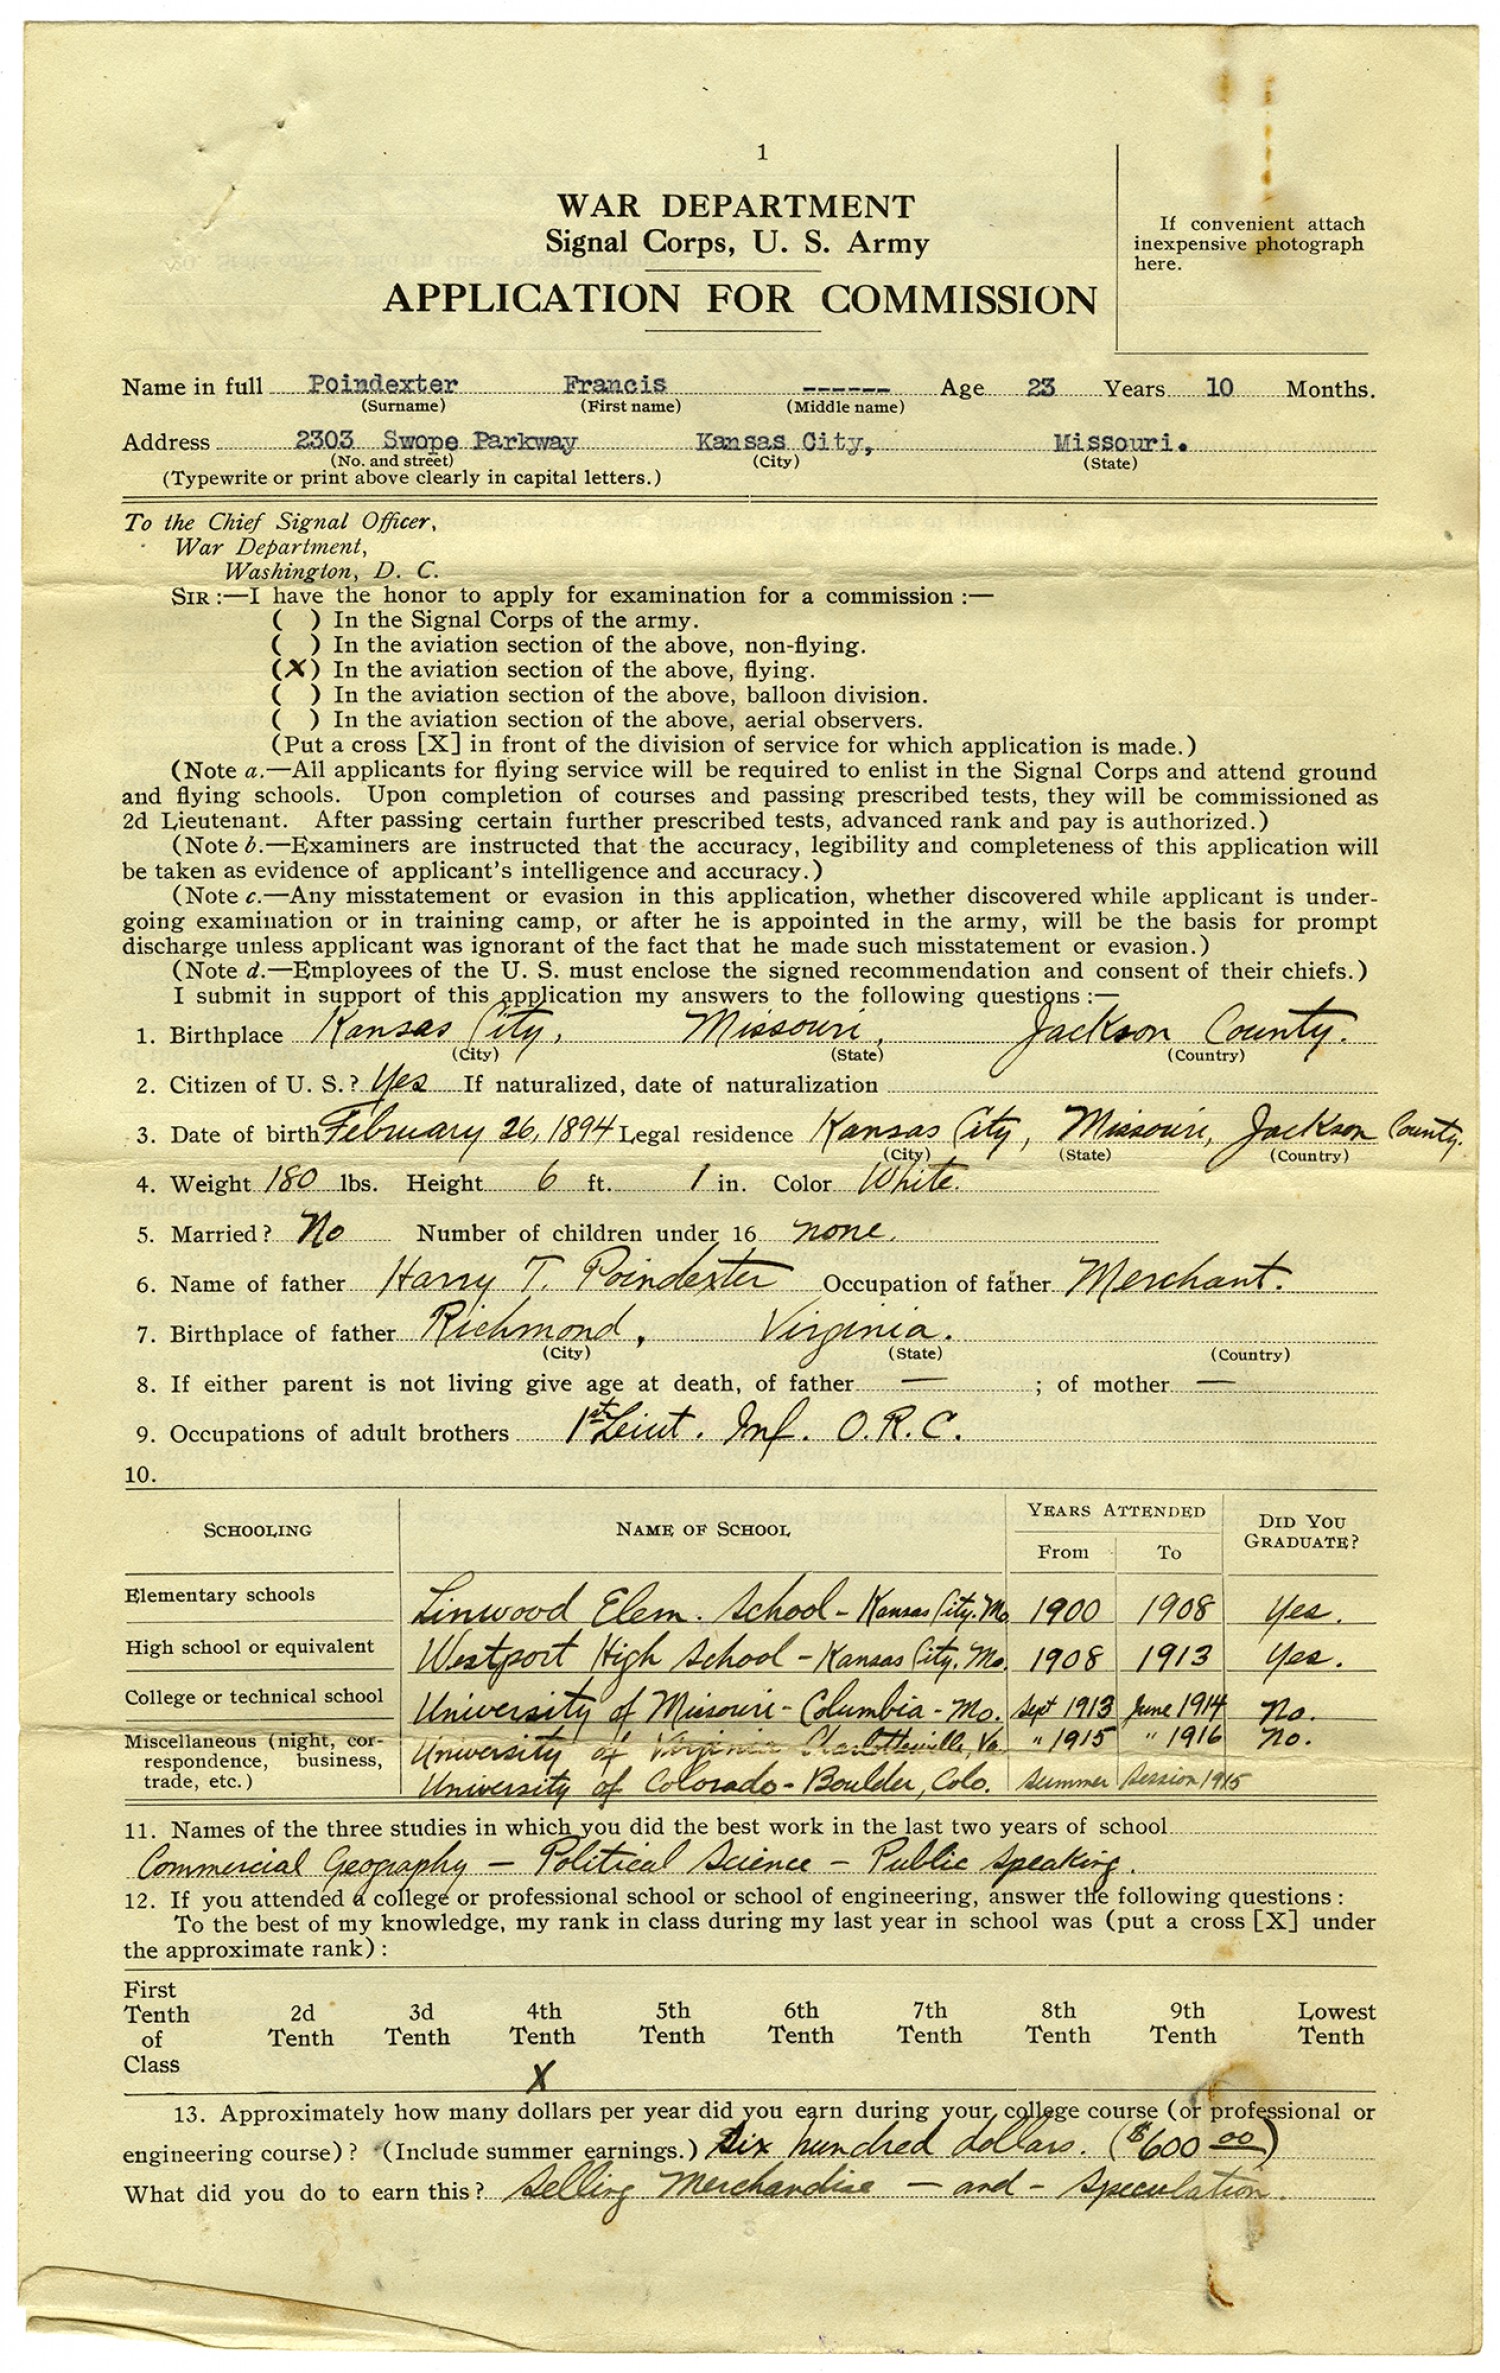 1
WAR DEPARTMENT
Signal Corps, U. S. Army
APPLICATION FOR COMMISSION
If convenient attach
inexpensive photograph
here.
Name in full Poindexter Francis ------ Age 23 Years 10 Months.
(Surname) (First name) (Middle name)
Address 2303 Swope Parkway Kansas City, Missouri.
(No. and street) (City) (State)
(Typewrite or print above clearly in capital letters.)
To the Chief Signal Officer,
War Department,
Washington, D. C.
SIR :—I have the honor to apply for examination for a commission :—
( ) In the Signal Corps of the army.
( ) In the aviation section of the above, non-flying.
(X) In the aviation section of the above, flying.
( ) In the aviation section of the above, balloon division.
( ) In the aviation section of the above, aerial observers.
(Put a cross [X] in front of the division of service for which application is made.)
(Note a.—All applicants for flying service will be required to enlist in the Signal Corps and attend ground
and flying schools. Upon completion of courses and passing prescribed tests, they will be commissioned as
2d Lieutenant. After passing certain further prescribed tests, advanced rank and pay is authorized.)
(Note b.—Examiners are instructed that the accuracy, legibility and completeness of this application will
be taken as evidence of applicant's intelligence and accuracy.)
(Note c.—Any misstatement or evasion in this application, whether discovered while applicant is under-
going examination or in training camp, or after he is appointed in the army, will be the basis for prompt
discharge unless applicant was ignorant of the fact that he made such misstatement or evasion.)
(Note d.—Employees of the U. S. must enclose the signed recommendation and consent of their chiefs.)
I submit in support of this application my answers to the following questions :—
1. Birthplace Kansas City, Missouri, Jackson County.
(City) (State) (Country)
2. Citizen of U. S.? Yes If naturalized, date of naturalization
3. Date of birth February 26, 1894 Legal residence Kansas City, Missouri, Jackson County.
(City) (State) (Country)
4. Weight 180 lbs. Height 6 ft. 1 in. Color White.
5. Married? No Number of children under 16 none.
6. Name of father Harry T. Poindexter Occupation of father Merchant.
7. Birthplace of father Richmond, Virginia.
(City) (State) (Country)
8. If either parent is not living give age at death, of father — ; of mother —
9. Occupations of adult brothers 1st Leiut. Inf. O.R.C.
10.
SCHOOLING NAME OF SCHOOL YEARS ATTENDED DID YOU GRADUATE?
From To
Elementary schools Linwood Elem. School - Kansas City. Mo. 1900 1908 Yes.
High school or equivalent Westport High School - Kansas City. Mo. 1908 1913 Yes.
College or technical school University of Missouri - Columbia - Mo. Sept 1913 June 1914 No.
Miscellaneous (night, cor- University of Virginia Charlottesville, Va. " 1915 " 1916 No.
respondence, business,
trade, etc.) University of Colorado - Boulder, Colo. Summer Session 1915
11. Names of the three studies in which you did the best work in the last two years of school
Commercial Geography — Political Science — Public Speaking.
12. If you attended a college or professional school or school of engineering, answer the following questions :
To the best of my knowledge, my rank in class during my last year in school was (put a cross [X] under
the approximate rank) :
First
Tenth 2d 3d 4th 5th 6th 7th 8th 9th Lowest
of Tenth Tenth Tenth Tenth Tenth Tenth Tenth Tenth Tenth
Class
X
13. Approximately how many dollars per year did you earn during your college course (or professional or
engineering course) ? (Include summer earnings.) Six hundred dollars. ($600 00)
What did you do to earn this? Selling Merchandise — and - Speculation.